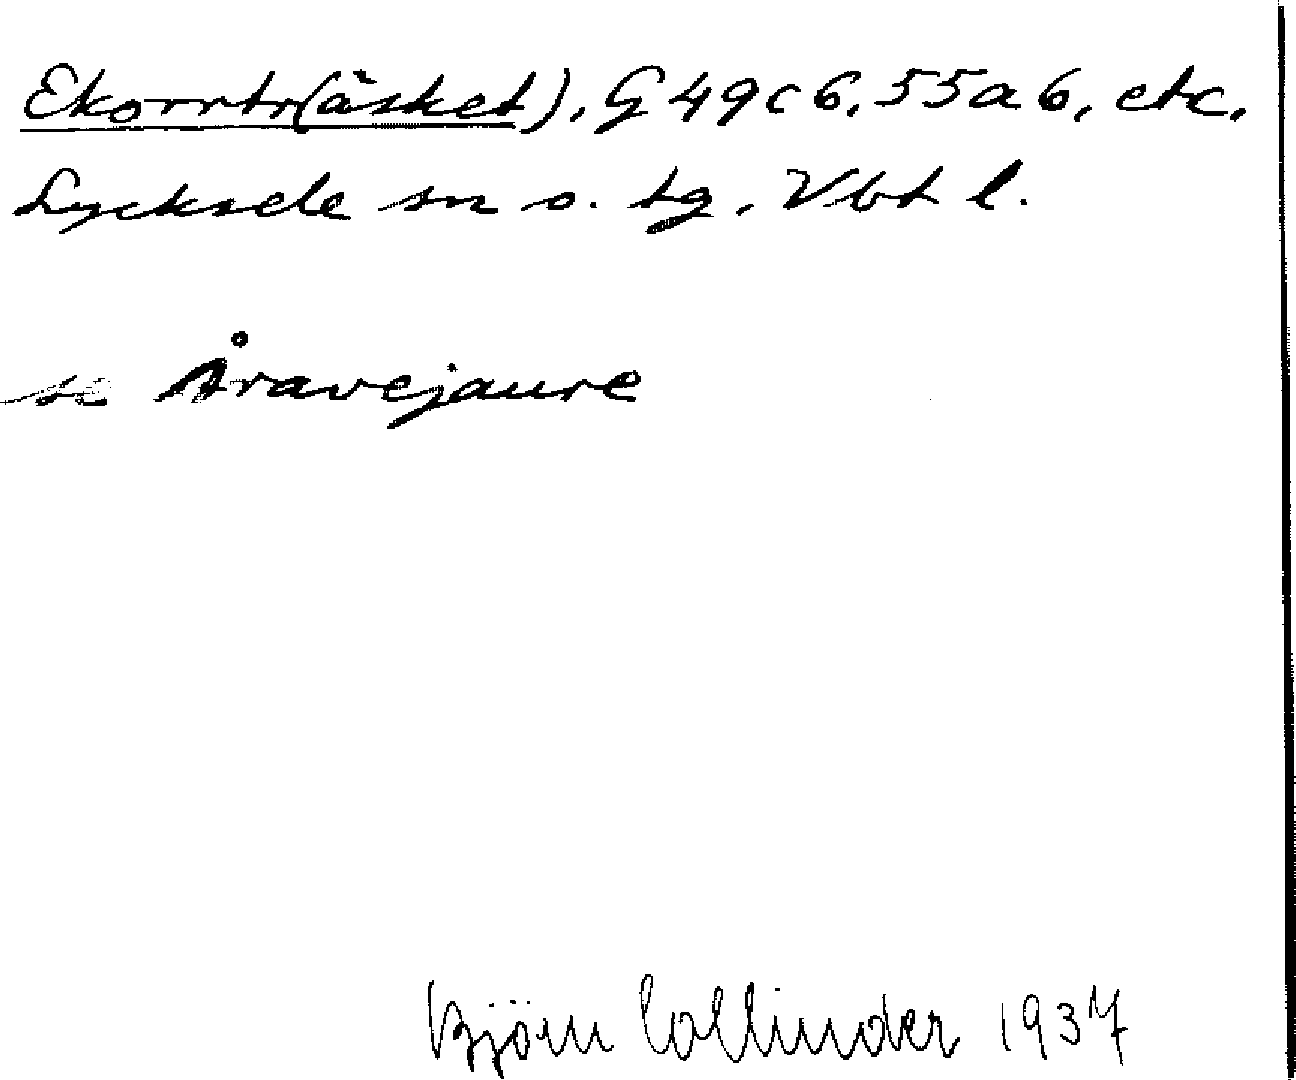 Ekorrtr(äsket), G 49c6, 55a6, etc.
Lycksele sn o. tg, Vbt l.
se Åravejaure
Björn Collinder 1937